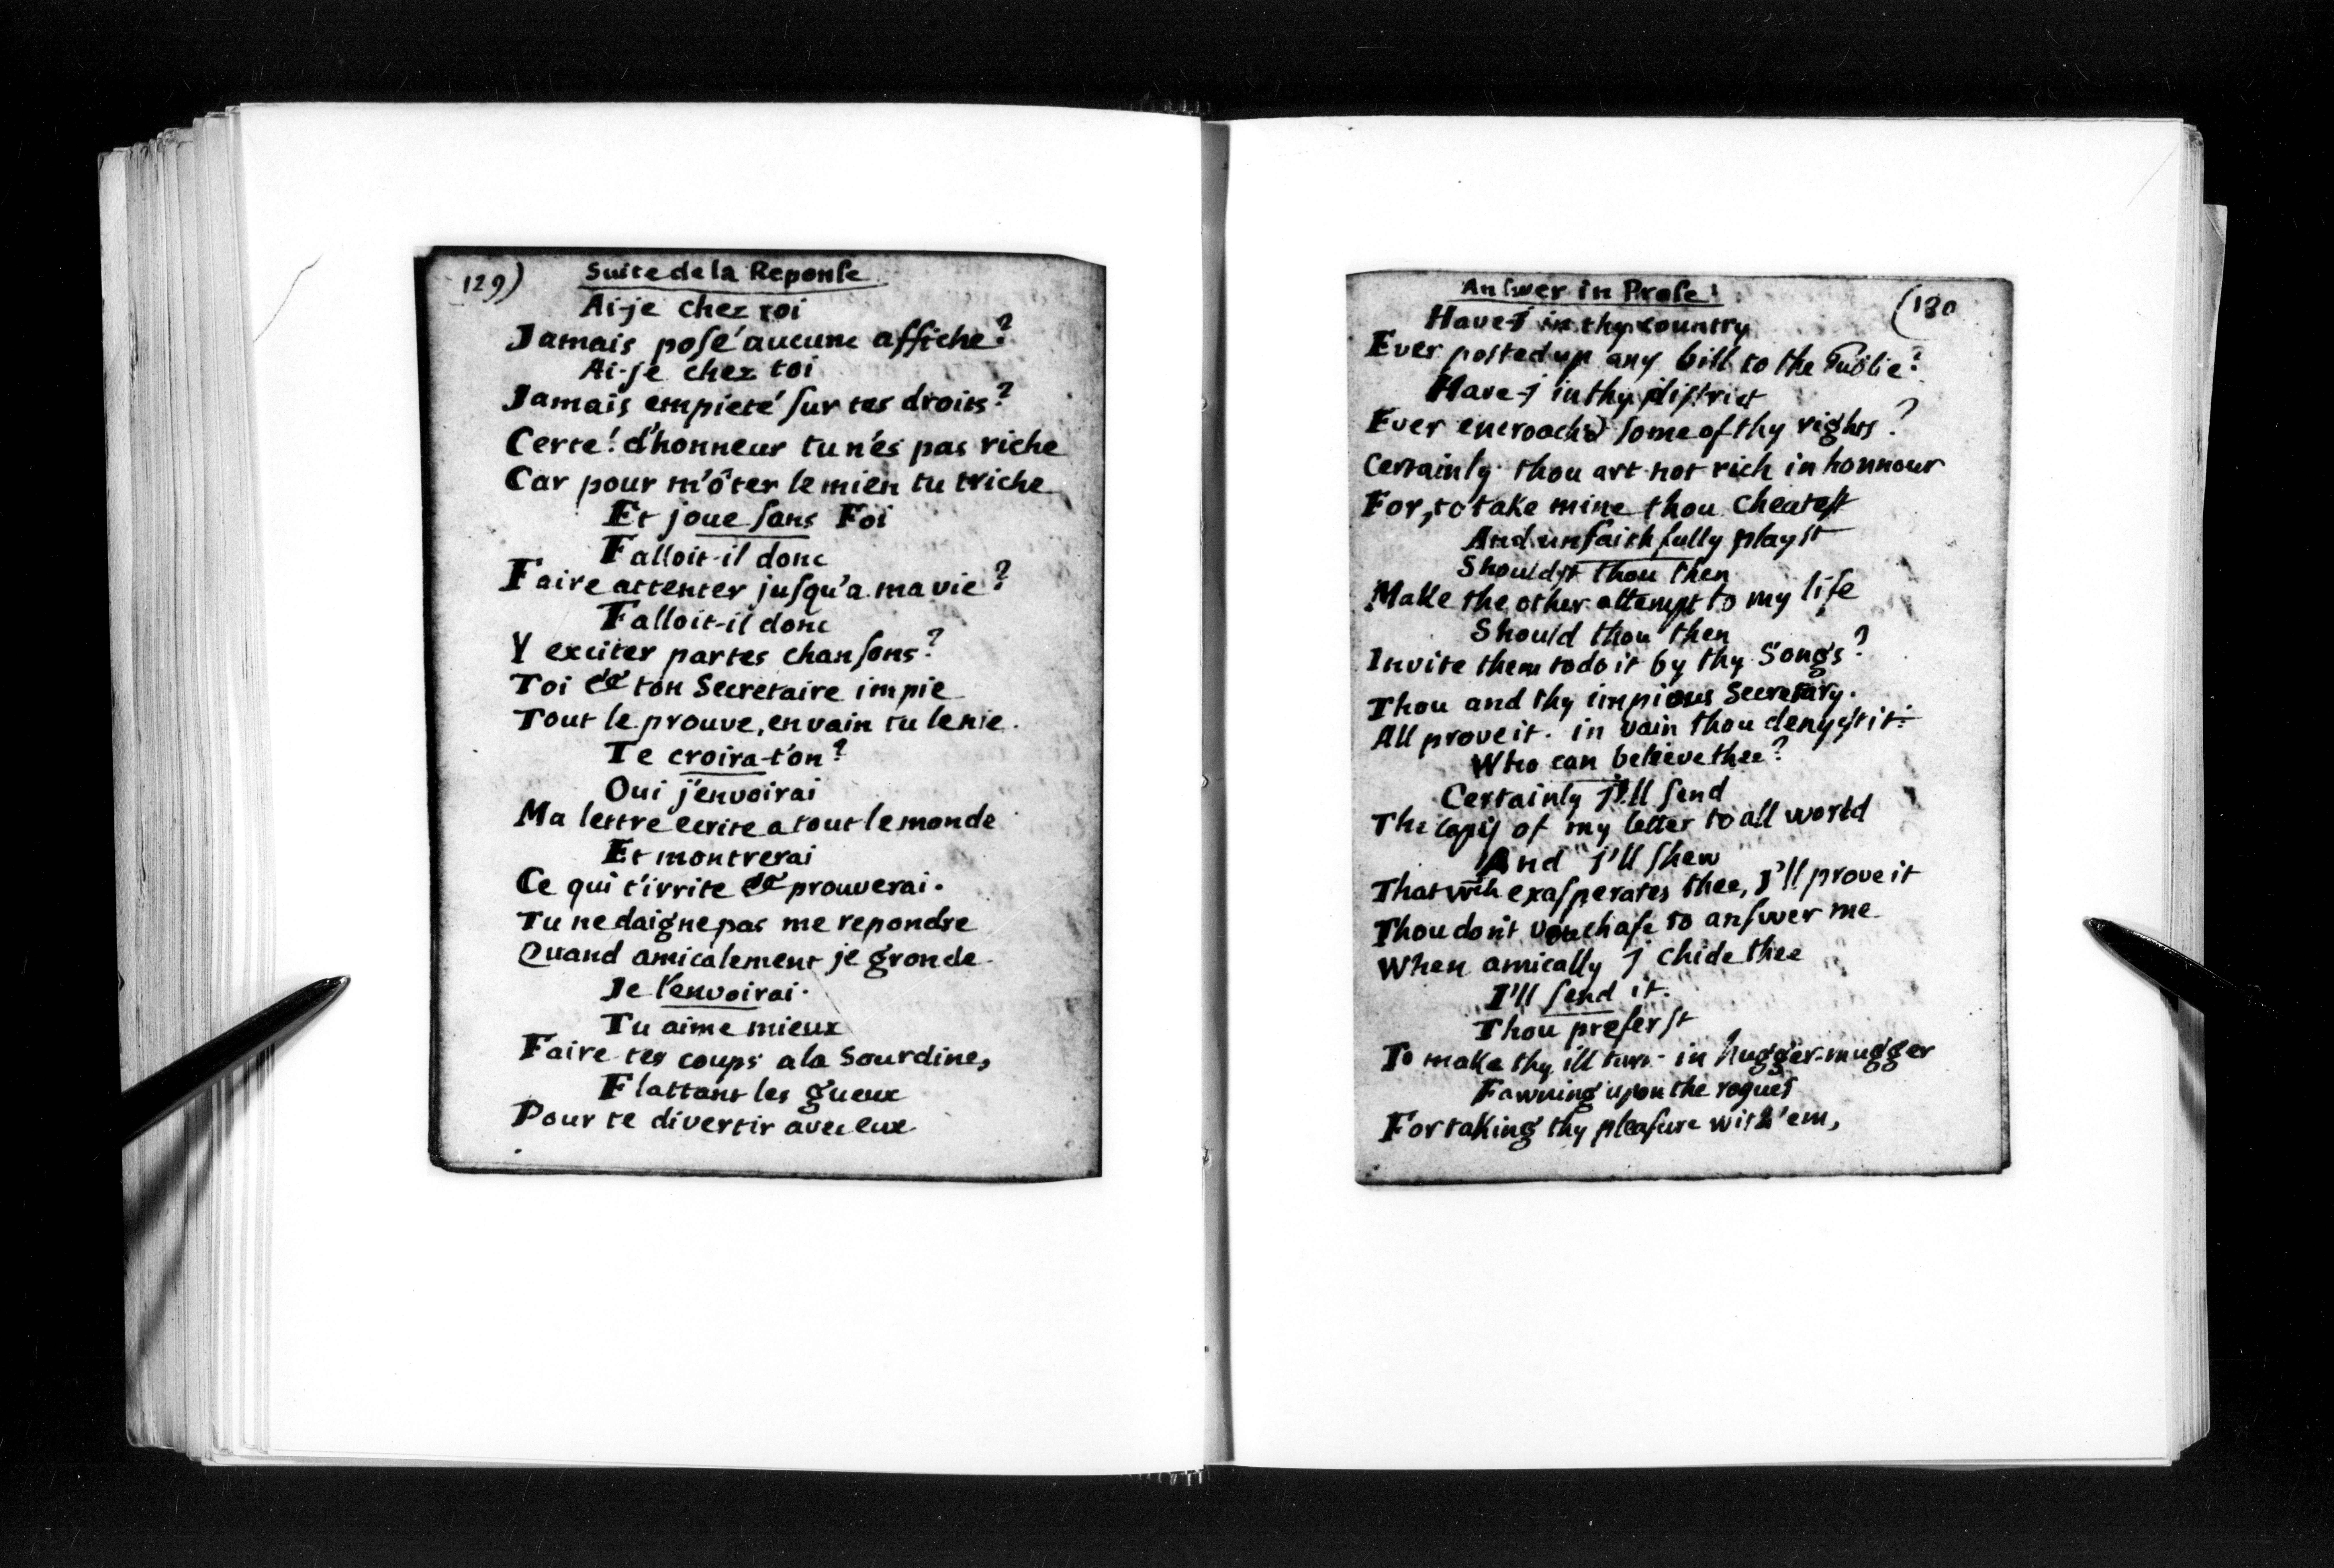 129)
Suite de la Reponse
Ai-je chez toi
Jamais posé aucune affiche?
Ai-je chez toi
Jamais empieté sur tes droits?
Certe! d'honneur tu n'és pas riche
Car pour m'ôter le mien tu triche
Et joue sans Foi
Falloit-il donc
Faire attenter jusqu'a ma vie?
Falloit-il donc
Y exciter par tes chansons?
Toi & ton Secretaire impie
Tout le prouve, en vain tu le nie.
Te croira-t'on?
Oui j'envoirai
Ma lettre ecrite a tout le monde
Et montrerai
Ce qui t'irrite & prouverai.
Tu ne daigne pas me repondre
Quand amicalement je gronde
Je l'envoirai.
Tu aime mieux
Faire tes coups a la Sourdine,
Flattant les gueux
Pour te divertir avec eux
Answer in Prose
(130
Have-j in thy country
Ever posted up any bill to the Public?
Have-j in thy district
Ever encroach'd some of thy rights?
Certainly thou art not rich in honnour
For, to take mine thou cheatest
And unfaithfully playst
Shouldst thou then
Make the other attempt to my life
Should thou then
Invite them to do it by thy Songs?
Thou and thy impious Secretary.
All prove it. in vain thou denyst it.
Who can believe thee?
Certainly j'll send
The copy of my letter to all world
And j'll shew
That wch exasperates thee, j'll prove it
Thou don't vouchafe to answer me
When amically j chide thee
I'll send it.
Thou preferst
To make thy ill turn in hugger-mugger
Fawning upon the rogues
For taking thy pleasure with 'em,